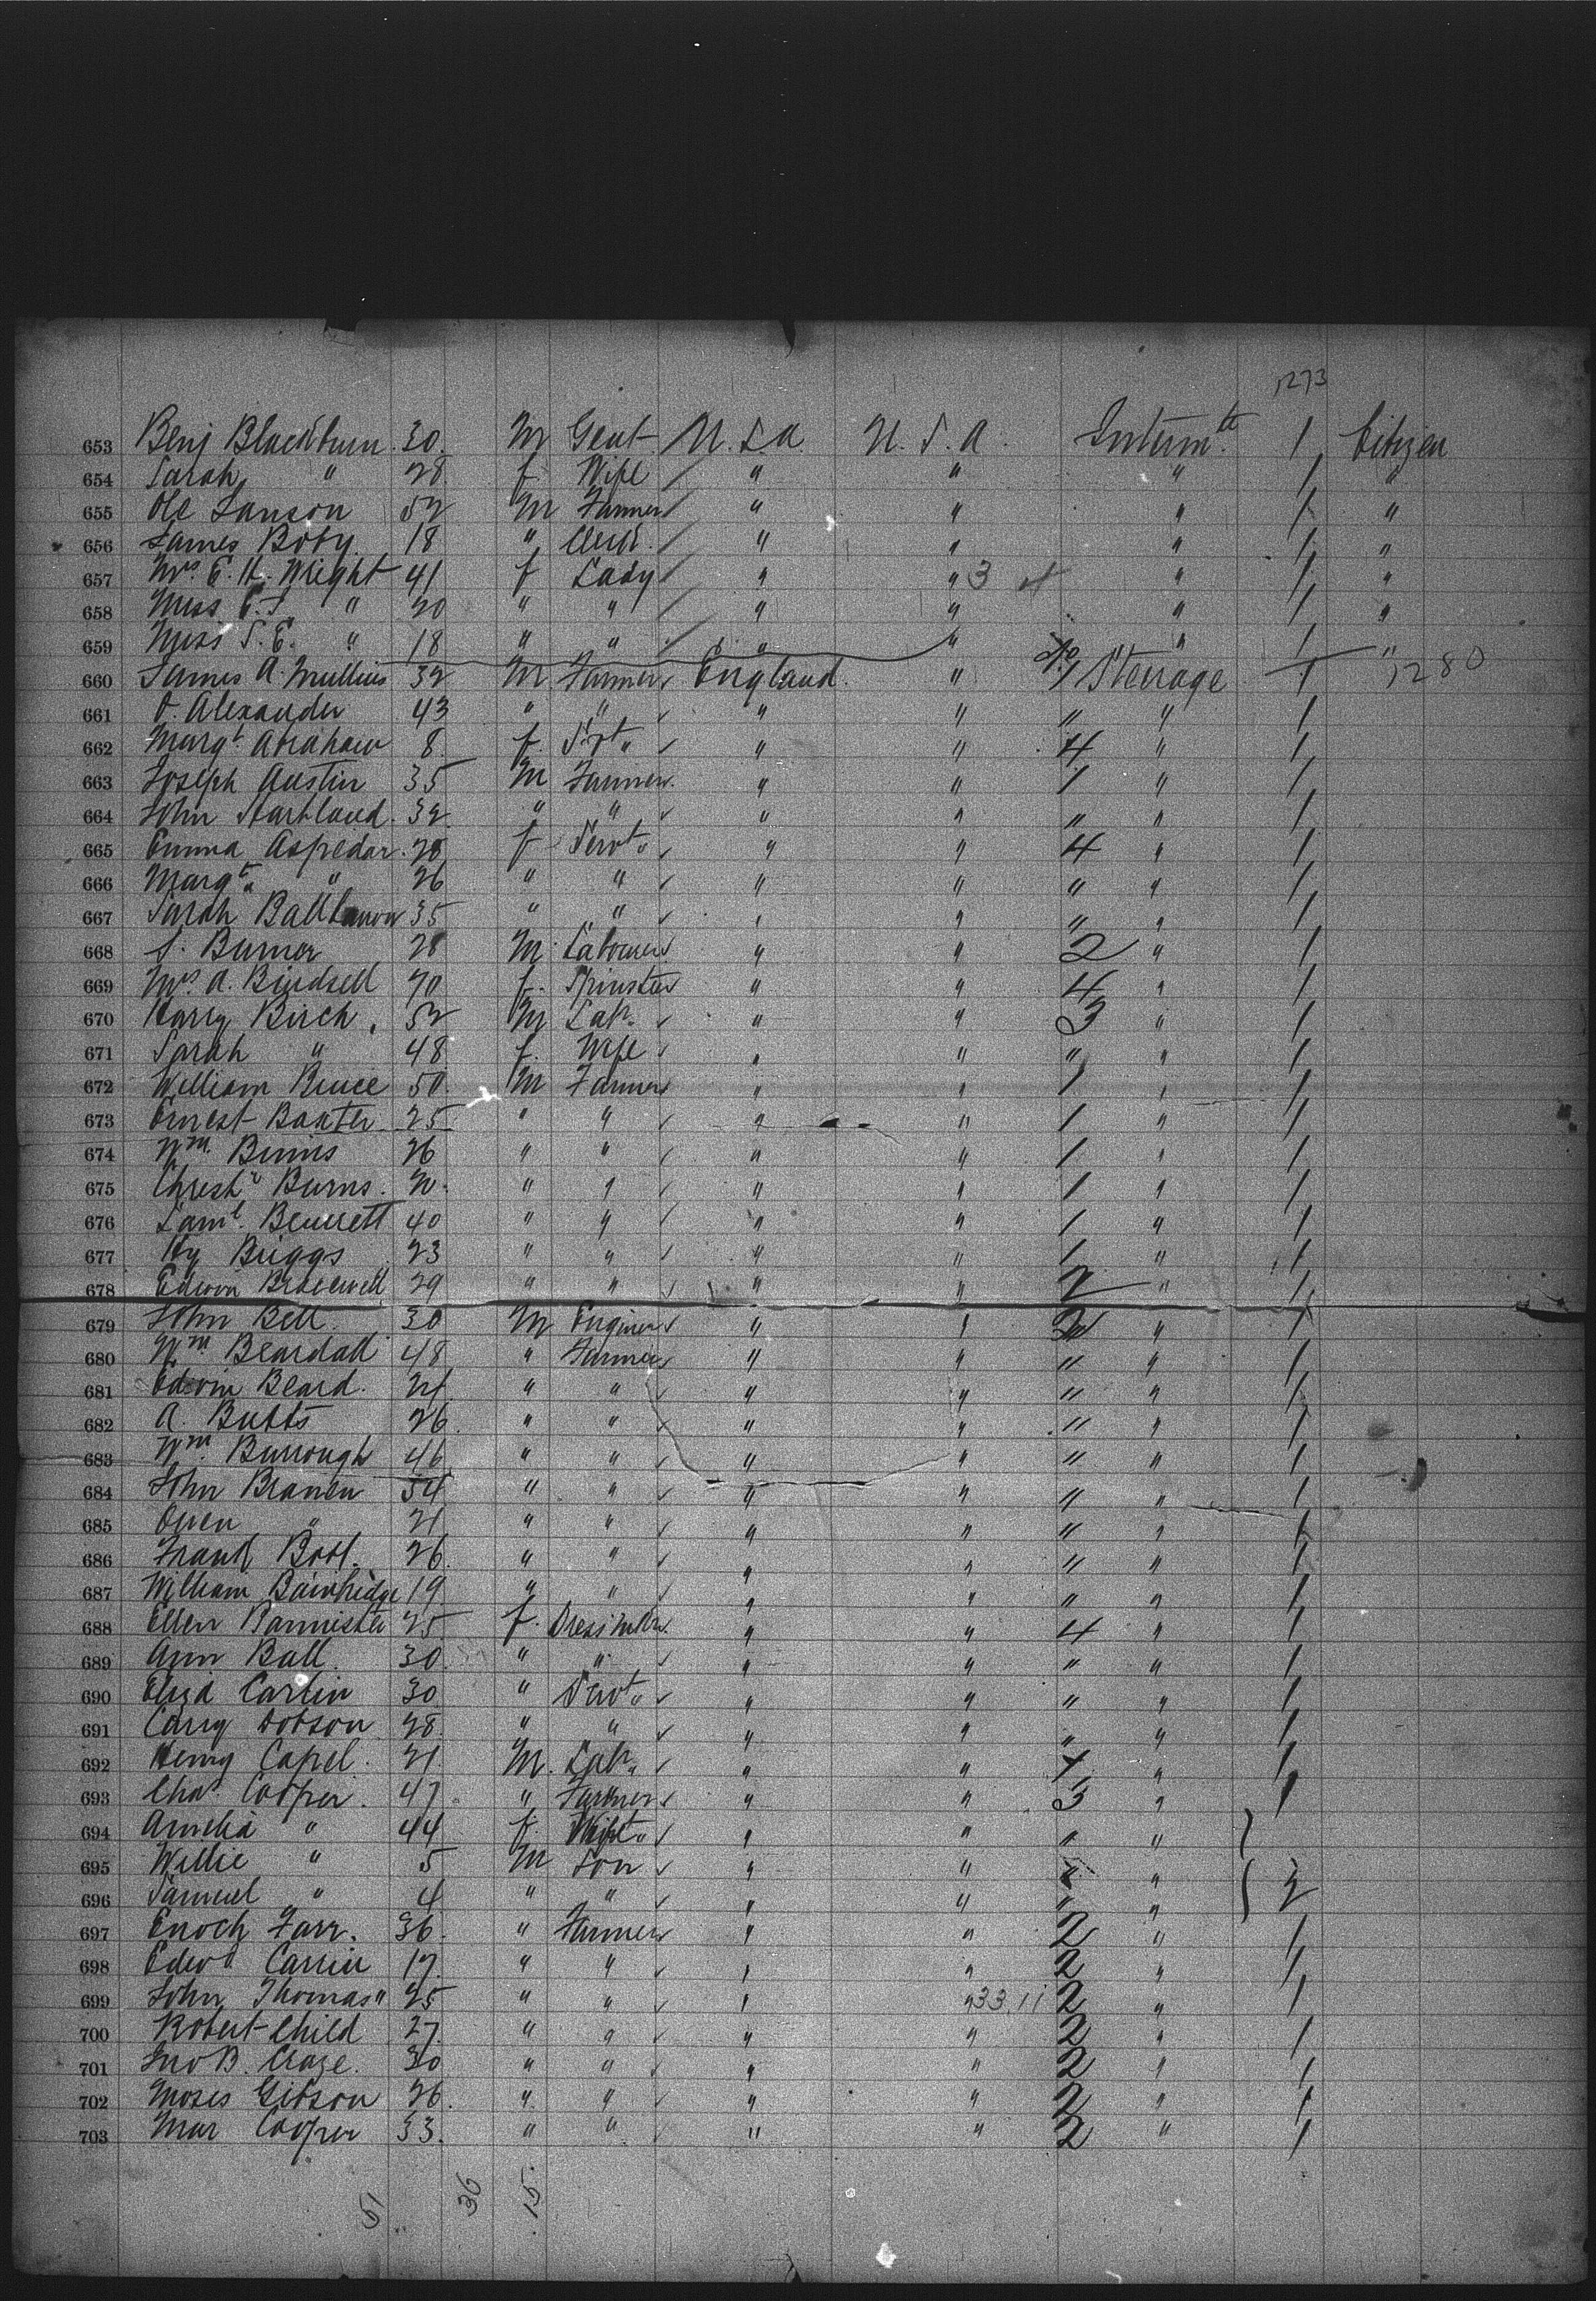 1273
653 Benj Blackburn 30 M Gent U.S.A. U.S.A. Interm th 1 Citizen
654 Sarah " 28 f Wife " " " 1 "
655 Ole Lanson 52 M Farmer " " " 1 "
656 James Boby 18 " " " " 1 "
657 Mrs E. H. Wright 41 f Lady " " 3 " 1 "
658 Miss " 20 " " " " " 1 "
659 Miss S. E. " 18 " " " " " 1 "
660 James A. Mullins 32 M Farmer England " 1 Sterrage 1 1280
661 O. Alexander 43 " " " " " " 1
662 Margt Abraham 8 f Svt " " " 4 " 1
663 Joseph Austin 35 M Farmer " " 1 " 1
664 John Hartland 32 " " " " " " 1
665 Emma Aspedar 28 f Servt " " " 4 " 1
666 Margt " 26 " " " " " " 1
667 Sarah 35 " " " " " " 1
668 J. Burner 28 M Labourer " " 2 " 1
669 Mrs A. Birdsell 70 f Spinster " " 4 " 1
670 Harry Birch 52 M Labr " " 3 " 1
671 Sarah " 48 f Wife " " " " 1
672 William Bruce 50 M Farmer " " 1 " 1
673 Ernest Baxter 25 " " " " 1 " 1
674 Wm Binns 26 " " " " 1 " 1
675 Chrestr Burns 20 " " " " 1 " 1
676 Saml Bennett 40 " " " " 1 " 1
677 Hy Briggs 23 " " " " 1 " 1
678 Edwin Bracewell 29 " " " " 2 " 1
679 John Bell 30 M Enginer " " 2 " 1
680 Wm Beardall 48 " Farmer " " " " 1
681 Edwin Beard 21 " " " " " " 1
682 A. Butts 26 " " " " " " 1
683 Wm Burrough 46 " " " " " " 1
684 John Branen 54 " " " " " " 1
685 Owen " 21 " " " " " " 1
686 Frank Bool 26 " " " " " " 1
687 William Bainbridge 19 " " " " " " 1
688 Ellen Bannister 25 f Dressmkr " " 4 " 1
689 Ann Ball 30 " " " " " " 1
690 Eliza Carlin 30 " Servt " " " " " 1
691 Carry Dobson 28 " " " " " " 1
692 Henry Capel 21 M Labr " " " 1 " 1
693 Chas Cooper 47 " Farmer " " 3 " 1
694 Amelia " 44 f Wife " " " "
695 Willie " 5 M Son " " " "
696 Samuel " 4 " " " " " " 3
697 Enoch Farr 36 " Farmer " " 2 " 1
698 Edwd Carrin 17 " " " " 2 " 1
699 John Thomas " 25 " " " " 33 11 2 " 1
700 Robert Child 27 " " " " 2 " 1
701 Jno B. Craze 30 " " " " 2 " 1
702 Moses Gibson 26 " " " " 2 " 1
703 Mar Cooper 33 " " " " 2 " 1
51 36 15